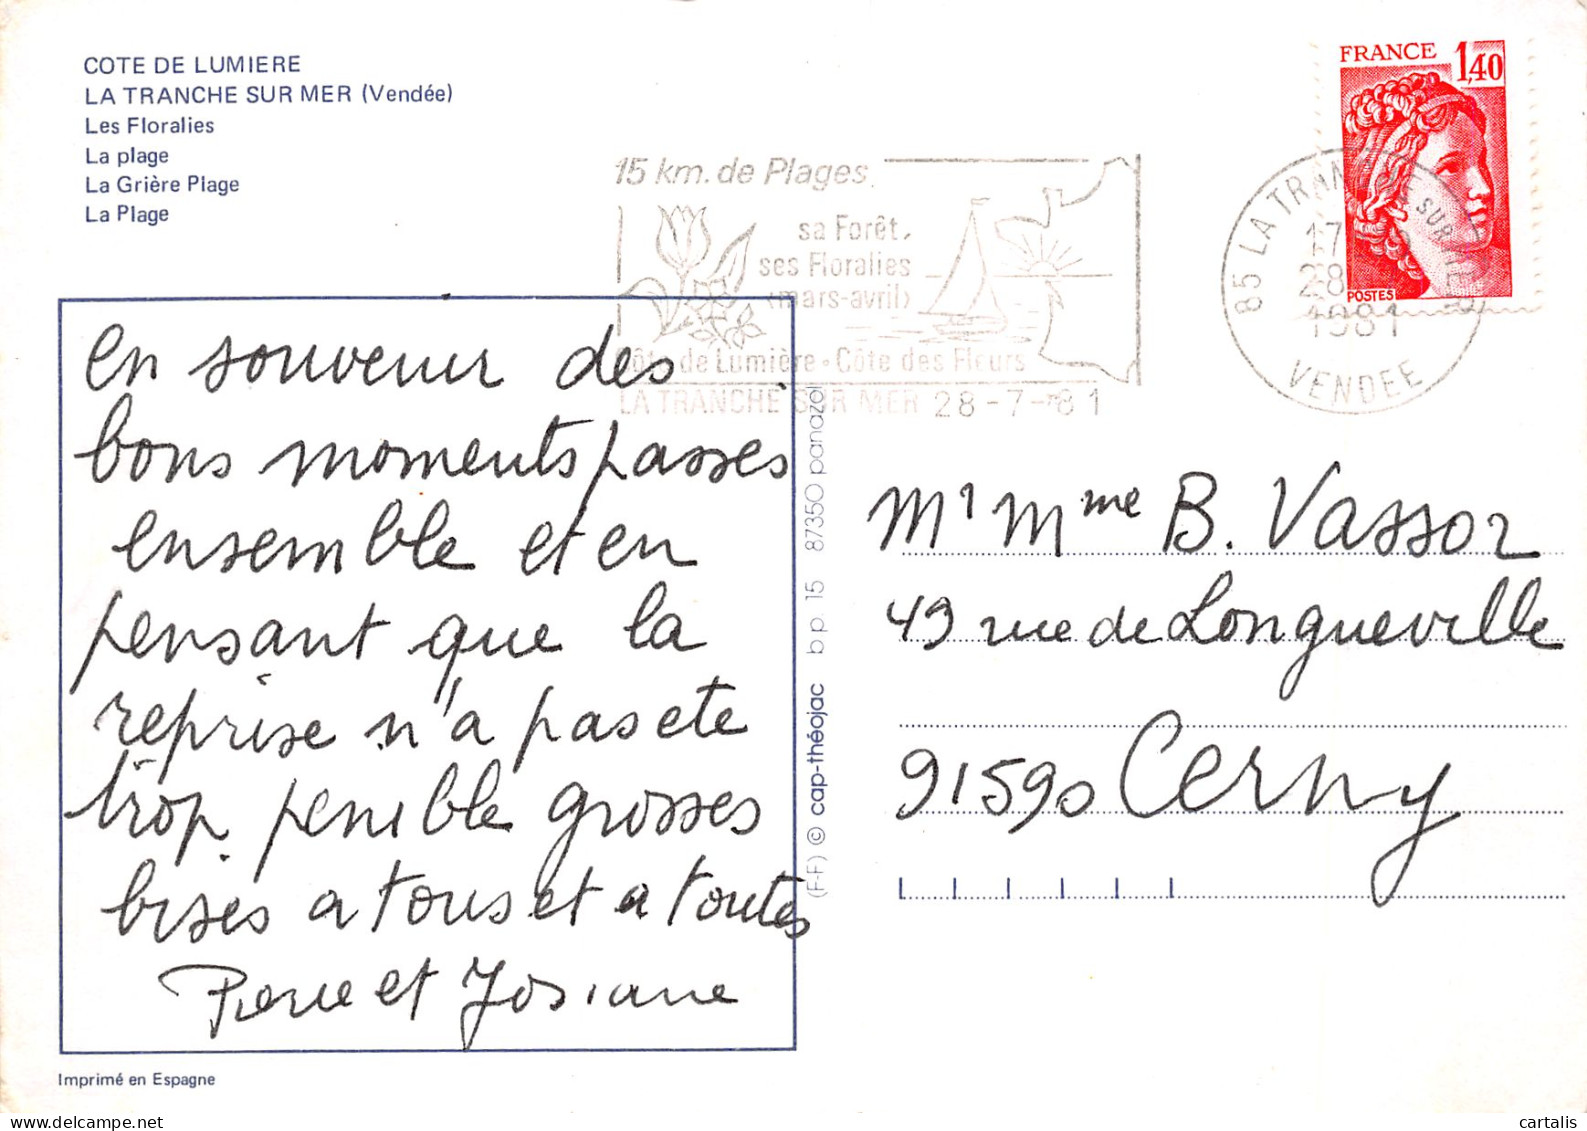 COTE DE LUMIERE
LA TRANCHE SUR MER (Vendée)
Les Floralies
La plage
La Grière Plage
La Plage
15 km. de Plages
sa Forêt,
ses Floralies
(mars-avril)
Côte de Lumière • Côte des Fleurs
LA TRANCHE SUR MER 28-7-81
FRANCE 1,40
POSTES
85 LA TRANCHE SUR MER
17
28
1981
VENDEE
en souvenir des
bons moments passés
ensemble et en
pensant que la
reprise n'a pas ete
trop penible grosses
bises a tous et a toutes
Pierre et Josiane
(F-F) © cap-théojac bp. 15 87350 panazol
Mr Mme B. Vassor
49 rue de Longueville
91590 Cerny
Imprimé en Espagne
cartalis